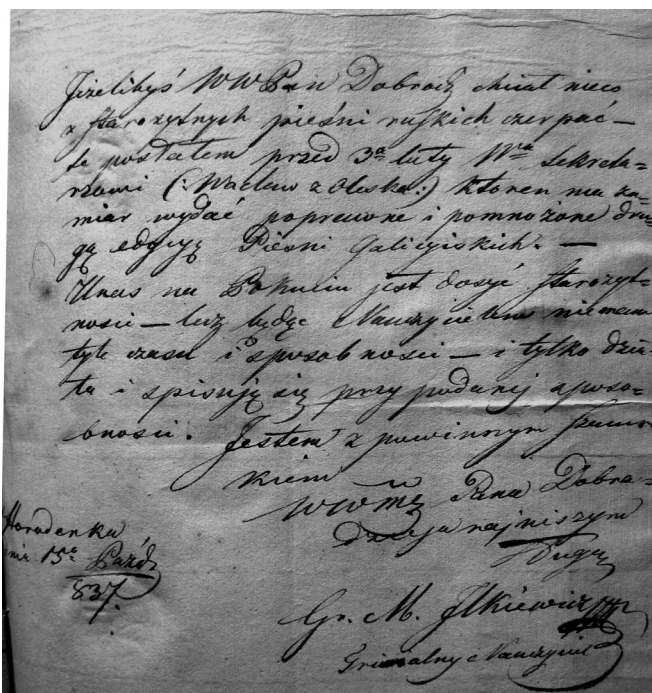 Jeżelibyś WWPan Dobrodź chciał nieco
z starożytnych pieśni ruskich czerpać —
te posłałem przed 3ª laty Wmu Sekreta-
rzowi (: Wacław z Oleska :) ktoren ma za-
miar wydać poprawne i pomnożone dru-
gą edycyą Pieśni Galicyiskich. —
Unas na Pokuciu jest dosyć starożyt-
ności — lecz będąc Nauczycielem niemam
tyle czasu i sposobności — i tylko
i spisują się przy podanej sposo-
bności. Jestem z powinnym szacun-
kiem
WWMę Pana Dobro-
dzieja najniższym
sługą
Horodenka
15go Paźdz
837.
Gr. M. Ilkiewicz
Nauczyciel